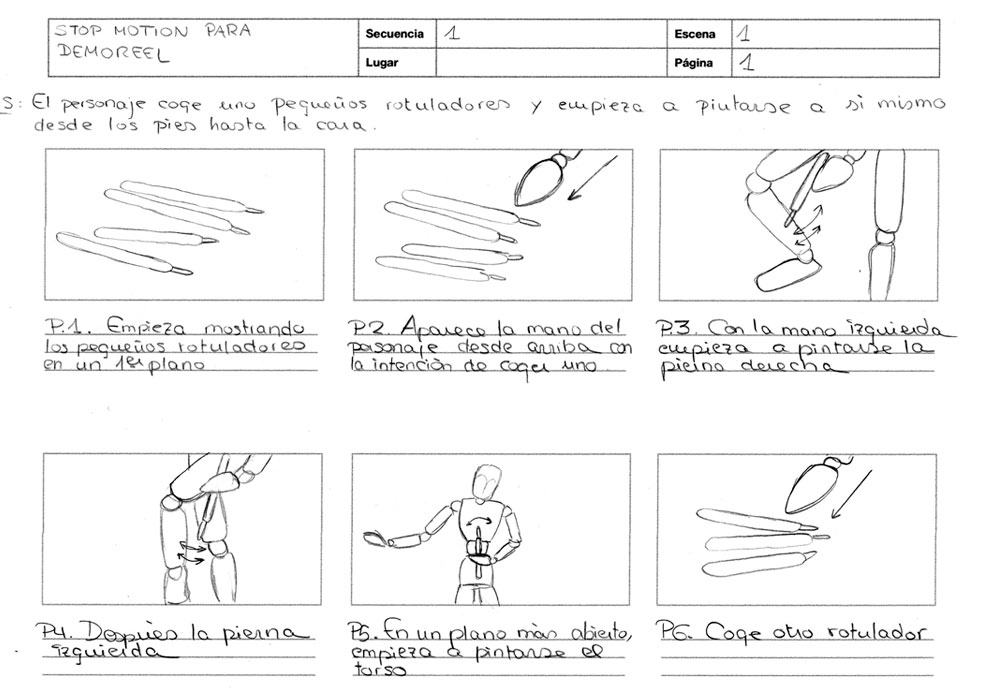 STOP MOTION PARA
DEMOREEL
Secuencia 1
Escena 1
Lugar
Página 1
S: El personaje coge uno pequeños rotuladores y empieza a pintarse a si mismo
desde los pies hasta la cara.
P.1. Empieza mostrando
los pequeños rotuladores
en un 1er plano
P2. Aparece la mano del
personaje desde arriba con
la intención de coger uno
P.3. Con la mano izquierda
empieza a pintarse la
pierna derecha
P4. Después la pierna
izquierda
P5. En un plano màs abierto,
empieza a pintarse el
torso
P6. Coge otro rotulador